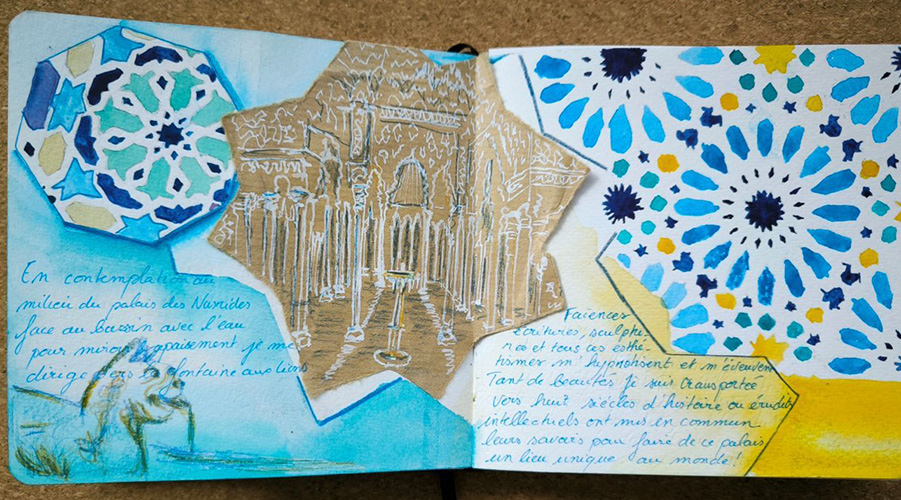 En contemplation au
milieu du palais des Nasrides
face au bassin avec l'eau
pour miroir apaisement je me
dirige vers la fontaine aux lions
Faïences
écritures, sculptu-
res et tous ces esthé-
tismes m'hypnotisent et m'émeuvent
Tant de beautés je suis transportée
vers huit siècles d'histoire où érudits
intellectuels ont mis en commun
leurs savoirs pour faire de ce palais
un lieu unique au monde !